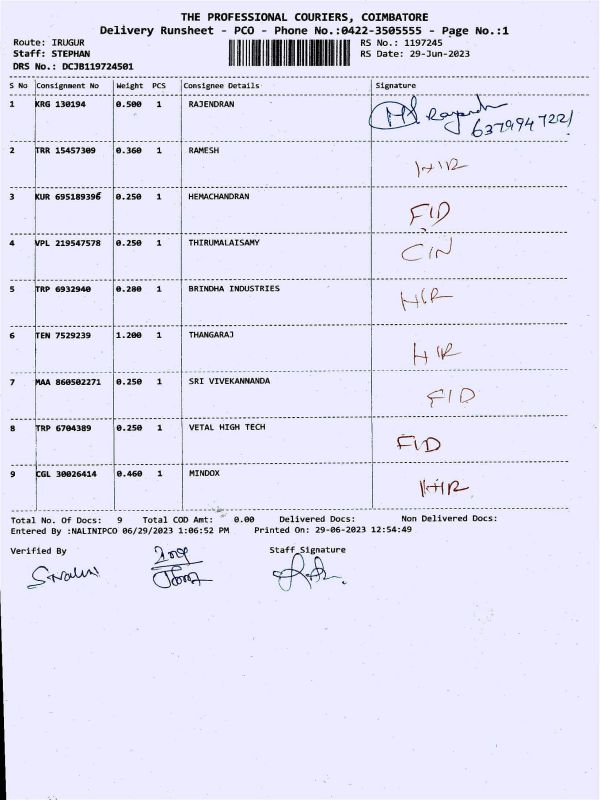 THE PROFESSIONAL COURIERS, COIMBATORE
Delivery Runsheet - PCO - Phone No.:0422-3505555 - Page No.:1
Route: IRUGUR RS No.: 1197245
Staff: STEPHAN RS Date: 29-Jun-2023
DRS No.: DCJB119724501
S No Consignment No Weight PCS Consignee Details Signature
1 KRG 130194 0.500 1 RAJENDRAN
6379947221
2 TRR 15457309 0.360 1 RAMESH
HIR
3 KUR 695189396 0.250 1 HEMACHANDRAN
FID
4 VPL 219547578 0.250 1 THIRUMALAISAMY
CIN
5 TRP 6932940 0.280 1 BRINDHA INDUSTRIES
HIR
6 TEN 7529239 1.200 1 THANGARAJ
HIR
7 MAA 860502271 0.250 1 SRI VIVEKANNANDA
FID
8 TRP 6704389 0.250 1 VETAL HIGH TECH
FID
9 CGL 30026414 0.460 1 MINDOX
HIR
Total No. Of Docs: 9 Total COD Amt: 0.00 Delivered Docs: Non Delivered Docs:
Entered By :NALINIPCO 06/29/2023 1:06:52 PM Printed On: 29-06-2023 12:54:49
Verified By Staff Signature
S.Nalini